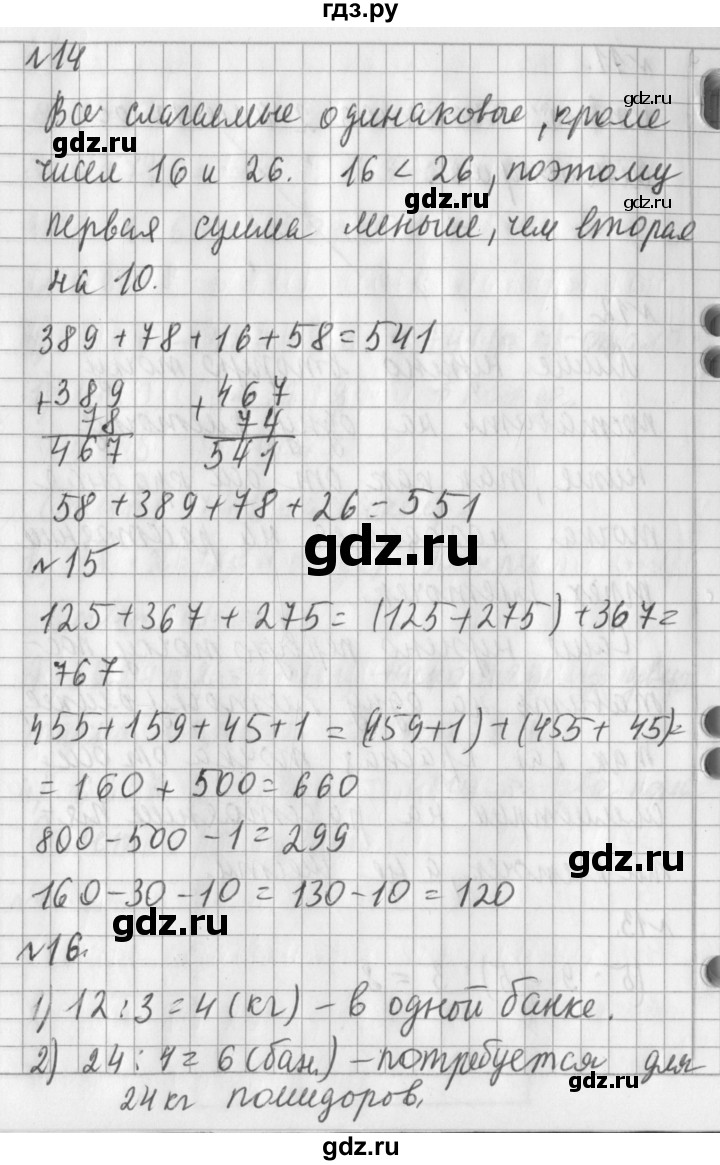 гдз.ру
№14
Все слагаемые одинаковые, кроме
gdz.ru
gdz.ru
чисел 16 и 26. 16 < 26, поэтому
gdz.ru
gdz.ru
первая сумма меньше, чем вторая
на 10.
389 + 78 + 16 + 58 = 541
+389 +467
78 74
467 541
58 + 389 + 78 + 26 = 551
gdz.ru
№15
125 + 367 + 275 = (125 + 275) + 367 =
767
455 + 159 + 45 + 1 = (159 + 1) + (455 + 45) =
= 160 + 500 = 660
800 - 500 - 1 = 299
gdz.ru
160 - 30 - 10 = 130 - 10 = 120
gdz.ru
gdz.ru
№16.
1) 12 : 3 = 4 (кг) - в одной банке.
2) 24 : 4 = 6 (бан.) - потребуется для
gdz.ru
24 кг помидоров.
gdz.ru